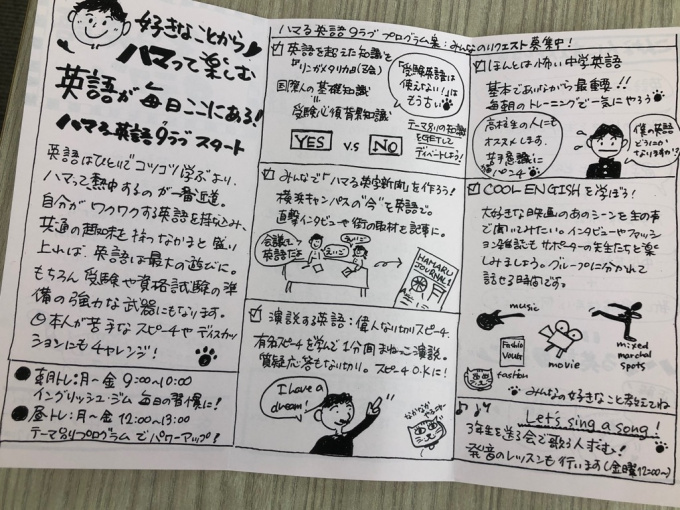 好きなことから
ハマって楽しむ
英語が毎日ここにある!
ハマる英語クラブ スタート
英語はひとりでコツコツ学ぶより、
ハマって熱中するのが一番近道。
自分がワクワクする英語を持ち込み、
共通の趣味を持つなかまと盛り
上れば、英語は最大の遊びに。
もちろん受験や資格試験の準
備の強力な武器にもなります。
日本人が苦手なスピーチやディスカッ
ションにもチャレンジ!
●朝トレ:月〜金 9:00〜10:00
イングリッシュ・ジム 毎日の習慣に!
●昼トレ:月〜金 12:00〜13:00
テーマ別プログラムでパワーアップ!
ハマる英語クラブ プログラム案:みんなのリクエスト募集中!
英語を超えた知識を
『リンガメタリカ』(Z会)
国際人の基礎知識
受験必須背景知識
「受験英語は
使えない!」は
もう古い
YES v.s NO
テーマ別の知識
を英語にして
ディベートしよう!
みんなで「ハマる英学新聞」を作ろう!
横浜キャンパスの"今"を英語で。
直撃インタビューや街の取材を記事に。
会議も
英語だよ
えいご
えいご
HAMARU
JOURNAL
演説する英語:偉人なりきりスピーチ
有名スピーチを学んで1分間まねっこ演説。
質疑応答もなりきり。スピーチO.K.に!
I have a
dream!
なかなかやるニャ〜
ほんとは怖い中学英語
基本でありながら最重要!!
毎朝のトレーニングで一気にやろう
高校生の人にも
オススメします。
苦手意識に
パンチ
僕の英語
どうにか
なりますか?
COOL ENGISHを学ぼう!
大好きな映画のあのシーンを生の声
で聞いてみたい。インタビューやファッ
ション雑誌もサポーターの先生たちと楽
しみましょう。グループに分かれて
話せる時間です。
music
Fashio
VOUG
fashon
movie
mixed
marchal
spots
みんなの好きなこと教えてね
Let's sing a song!
3年生を送る会で歌う人求む!
発音のレッスンも行います(金曜12:00〜)